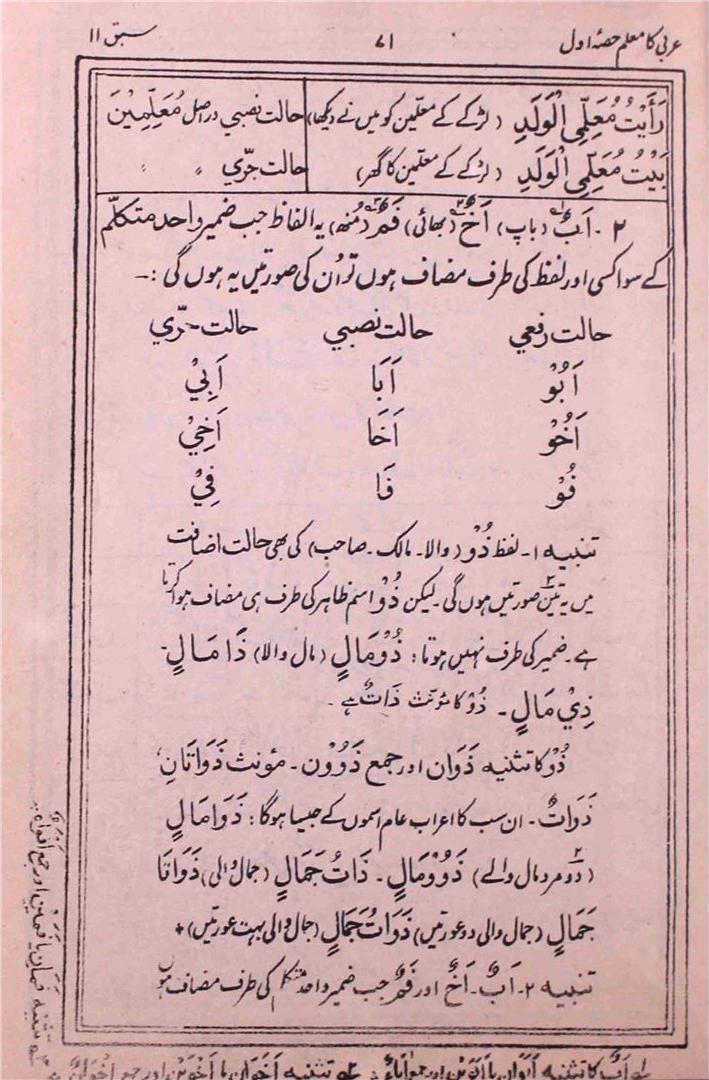 عربی کا معلم حصّۂ اول ۷۱ سبق ۱۱
رَأَيْتُ مُعَلِّمِى الْوَلَدِ (لڑکے کے معلّمین کو میں نے دیکھا) حالت نصبی دراصل مُعَلِّمِيْنَ
بَيْتُ مُعَلِّمِى الْوَلَدِ (لڑکے کے معلّمین کا گھر) حالت جرّی " "
۲۔ اَبٌ (باپ) اَخٌ (بھائی) فَمٌ (مُنھ) یہ الفاظ جب ضمیر واحد متکلّم
کے سوا کسی اور لفظ کی طرف مضاف ہوں تو اُن کی صورتیں یہ ہوں گی :۔
حالت رفعی حالت نصبی حالت جرّی
اَبُوْ اَبَا اَبِيْ
اَخُوْ اَخَا اَخِيْ
فُوْ فَا فِيْ
تنبیہ ۱۔ لفظ ذُوْ (والا۔ مالک۔ صاحب) کی بھی حالت اضافت
میں یہ تین صورتیں ہوں گی۔ لیکن ذُوْ اسم ظاہر کی طرف ہی مضاف ہوا کرتا
ہے۔ ضمیر کی طرف نہیں ہوتا: ذُوْمَالٍ (مال والا) ذَا مَالٍ۔
ذِيْ مَالٍ۔ ذُوْ کا مؤنث ذَاتٌ ہے۔
ذُوْ کا تثنیہ ذَوَان اور جمع ذَوُوْن۔ مؤنث ذَوَاتَانِ،
ذَوَاتٌ۔ ان سب کا اعراب عام اسموں کے جیسا ہوگا: ذَوَا مَالٍ
(دو مرد مال والے) ذَوُوْ مَالٍ۔ ذَاتُ جَمَالٍ (جمال والی) ذَوَاتَا
جَمَالٍ (جمال والی دو عورتیں) ذَوَاتُ جَمَالٍ (جمال والی بہت عورتیں)+
تنبیہ ۲۔ اَبٌ۔ اَخٌ اور فَمٌ جب ضمیر واحد متکلم کی طرف مضاف ہوں
تثنیہ اور جمع افواہ
اَبٌ کا تثنیہ اَبَوَان یا اَبَوَيْن اور جمع اٰبَاءٌ تثنیہ اَخَوَان یا اَخَوَيْن اور جمع اِخْوَانٌ